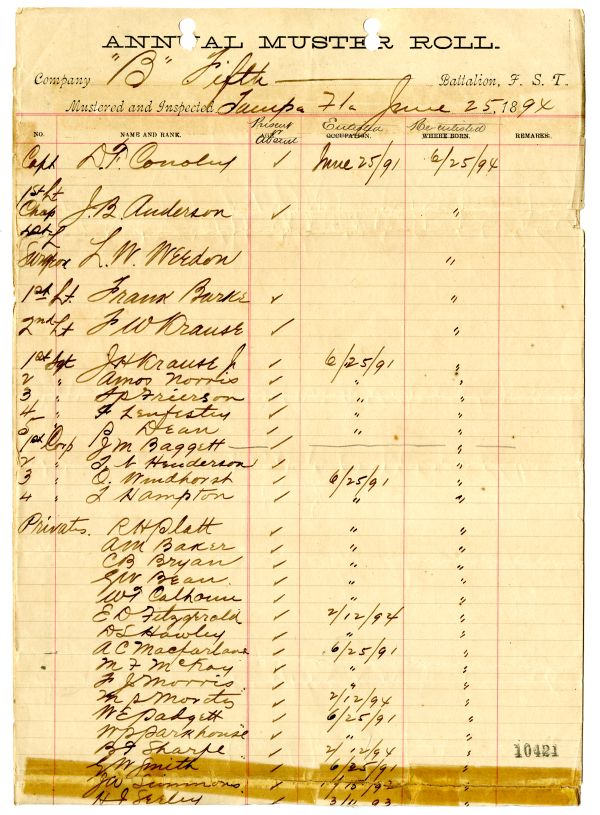 ANNUAL MUSTER ROLL.
Company "B" Fifth Battalion, F. S. T.
Mustered and Inspected Tampa Fla June 25, 1894
Present or Absent Enlisted Re-enlisted
NO. NAME AND RANK. OCCUPATION. WHERE BORN. REMARKS.
Capt D. F. Conoley ✓ June 25/91 6/25/94
1st Lt
Chap J. B. Anderson ✓ "
1st Lt
Surgeon L. W. Weedon "
1st Lt. Frank Barke ✓ "
2nd Lt F W Krause ✓ "
1st Sgt J H Krause Jr ✓ 6/25/91 "
2 " Amos Norris ✓ " "
3 " Frierson ✓ " "
4 " Lenfestey ✓ " "
5 " B Dean ✓ " "
1st Corp J M Baggett ✓ "
2 " Henderson ✓ "
3 " O. Windhorst ✓ 6/25/91 "
4 " Hampton ✓ " "
Privates. R H Platt ✓ " "
A M Baker ✓ " "
C B Bryan ✓ " "
G W Bean ✓ " "
W F Calhoun ✓ " "
E D Fitzgerald ✓ 2/12/94 "
D S Hawley ✓ " "
A C Macfarlane ✓ 6/25/91 "
M F McKay ✓ " "
F J Morris ✓ " "
M P 2/12/94 "
W E Padgett ✓ 6/25/91 "
W P Parkhouse ✓ " "
B F Sharpe ✓ 2/12/94 "
10421
G W Smith ✓ 6/25/91 "
J W Simmons ✓ "
H J Serley ✓ 3/11/93 "